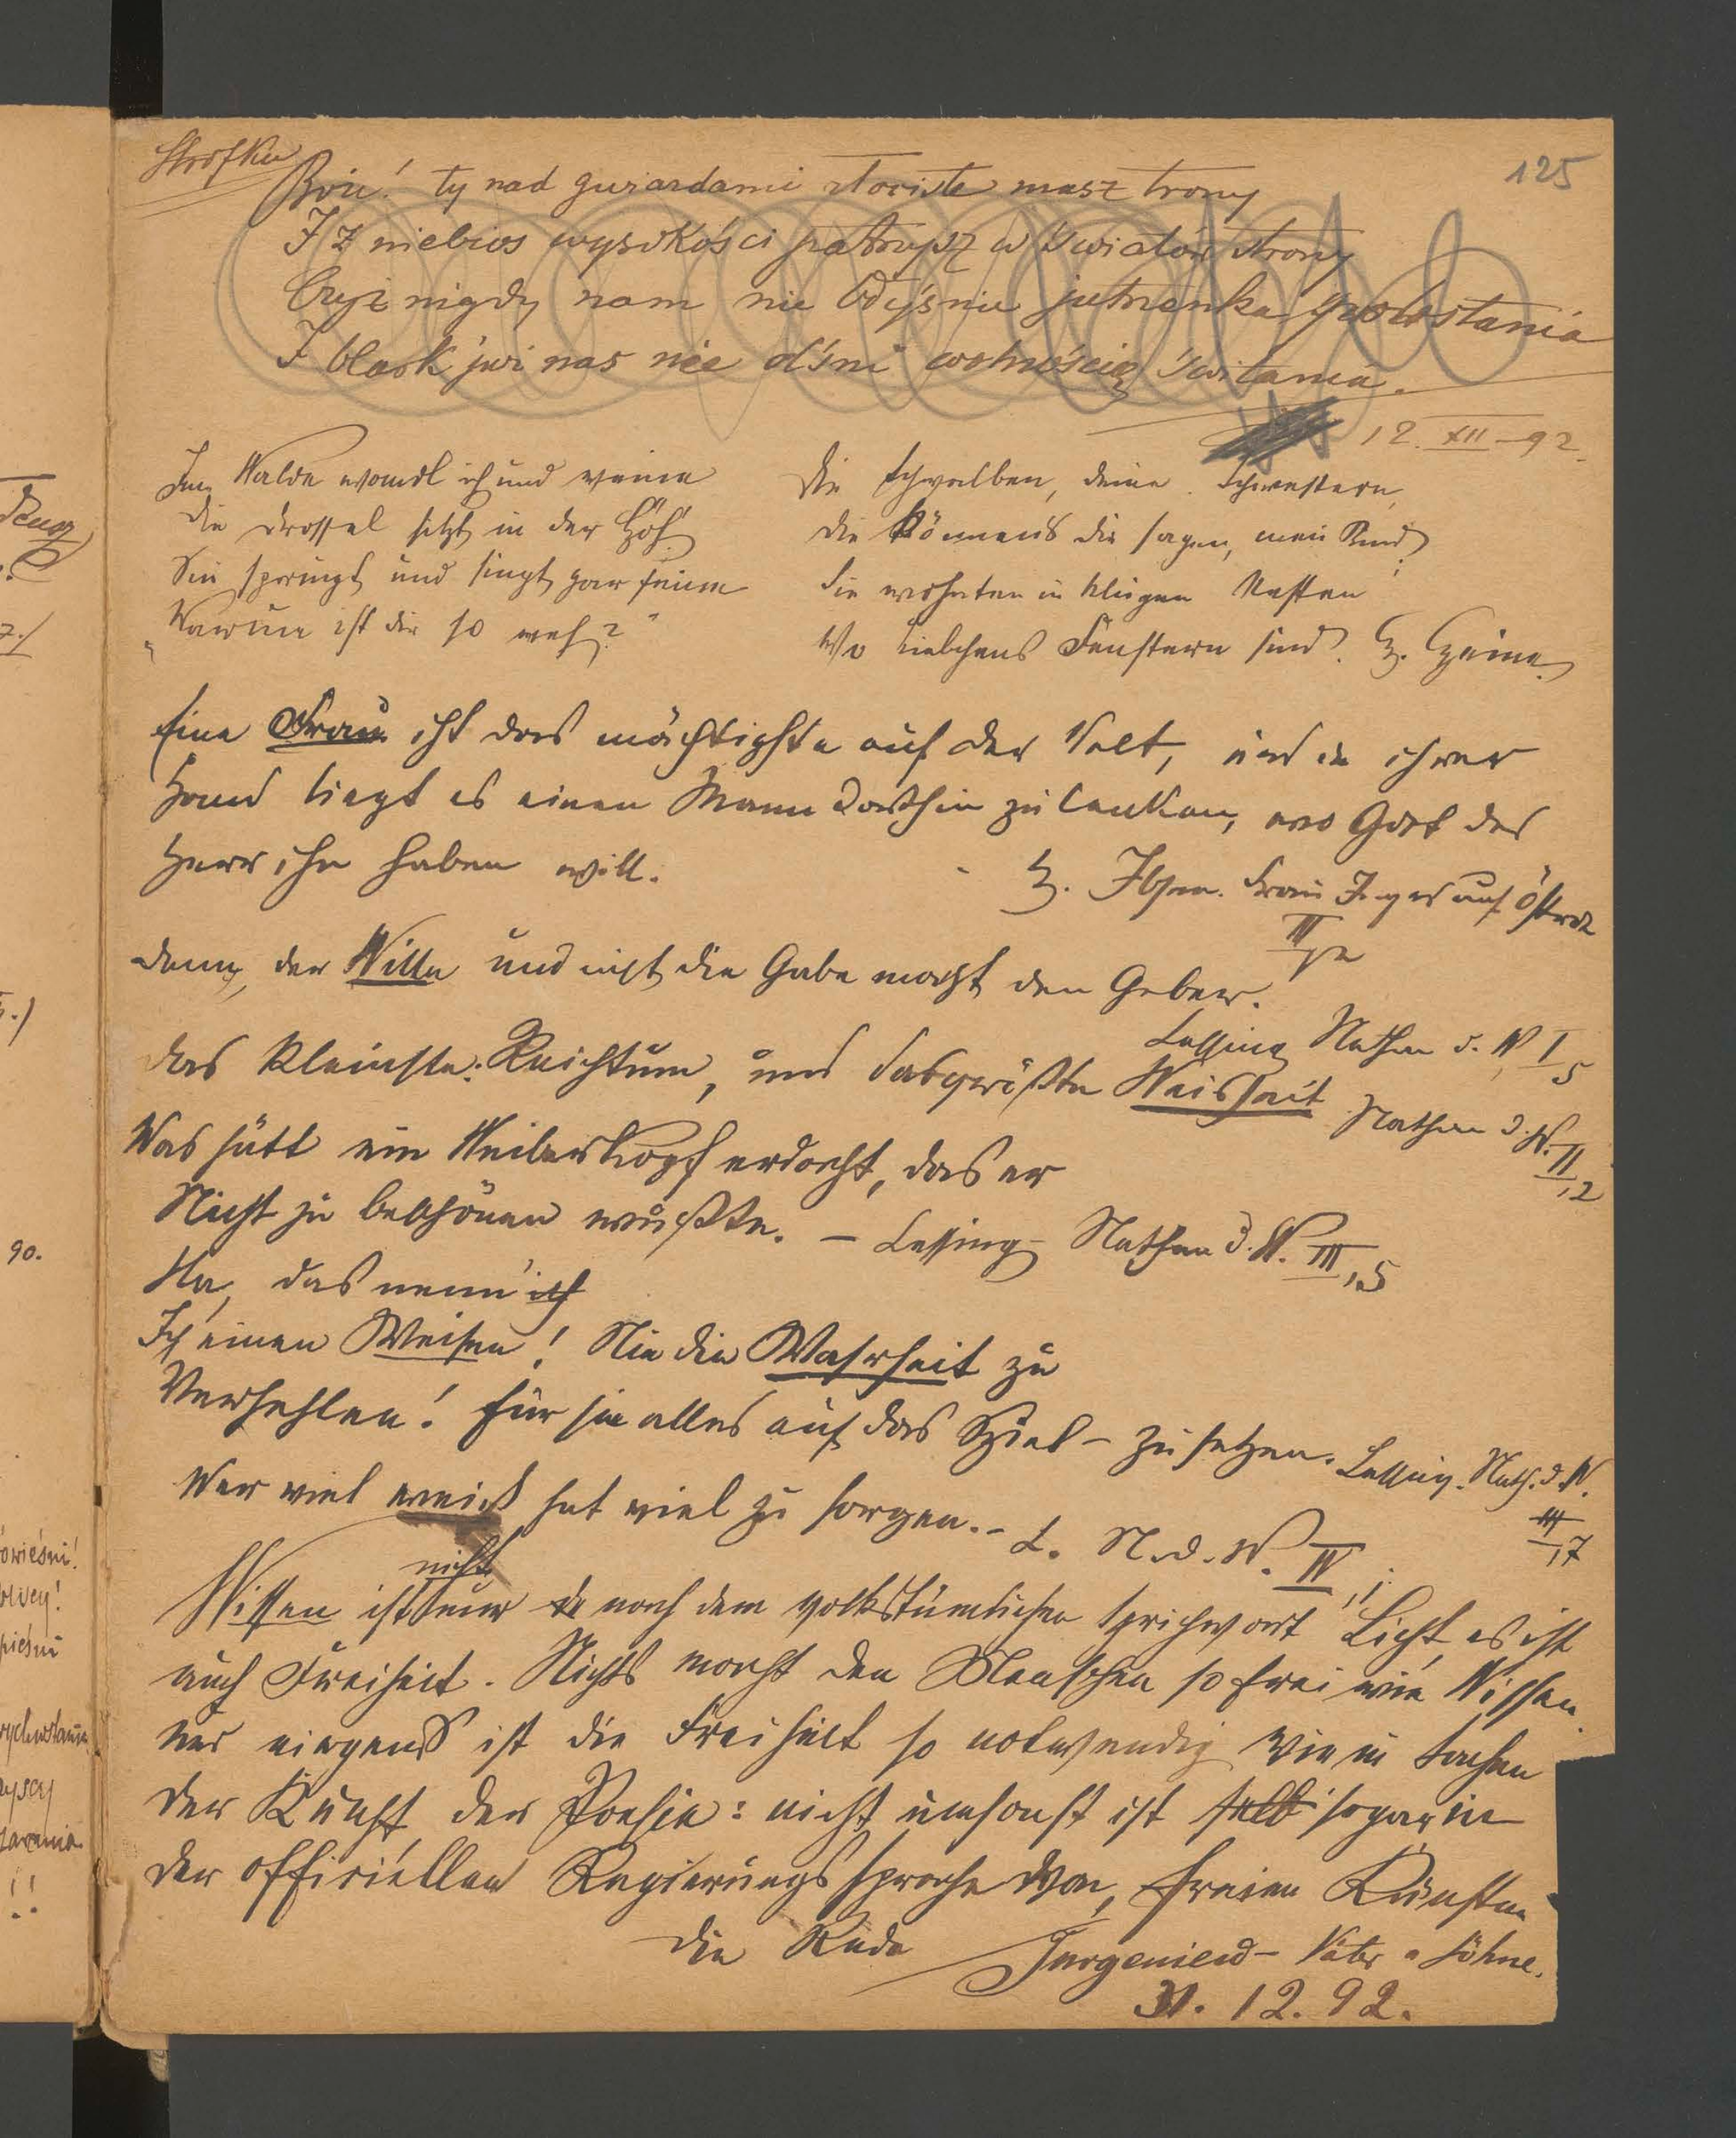 Strofka
125
Boże! ty nad gwiazdami złociste masz trony
I z niebios wysokości patrzysz w światów strony
Czyż nigdy nam nie błyśnie jutrzenka powstania
I blask już nas nie olśni wolnością świtania.
12. XII – 92.
Im Walde wandl ich und weine
Die Drossel sitzt in der Höh'
Sie springt und singt gar feine
„Warum ist dir so weh?"
Die Schwalben, deine Schwestern,
Die können's dir sagen, mein Kind;
Sie wohnten in klugen Nestern
Wo Liebchens Fenstern sind. H. Heine.
Eine Frau ist das mächtigste auf der Welt, und in ihrer
Hand liegt es einen Mann dorthin zu lenken, wo Gott der
Herr ihn haben will.
H. Ibsen. Frau Inger auf Östrot
III
Denn, der Wille und nicht die Gabe macht den Geber.
Lessing Nathan d. W. I, 5
Das Kleinste: Reichtum, und das größte Weisheit Nathan d. W. II, 2
Was hätt ein Weiberkopf erdacht, das er
Nicht zu beschönen wußte. – Lessing Nathan d. W. III, 5
Ha, das nenn' ich
Ich einen Weisen! Nie die Wahrheit zu
Verhehlen! für sie alles auf das Spiel – zu setzen. Lessing. Nath. d. W.
III, 7
Wer viel weiß hat viel zu sorgen. – L. N. d. W. IV, 1
nicht
Wissen ist nur nach dem volkstümlichen Sprichwort Licht, es ist
auch Freiheit. Nichts macht den Menschen so frei wie Wissen
und nirgends ist die Freiheit so notwendig wie in Sachen
der Kunst, der Poesie: nicht umsonst ist selb sogar in
der officiellen Regierungssprache von „freien Künsten
die Rede Turgeniew – Väter u Söhne.
31. 12. 92.
90.